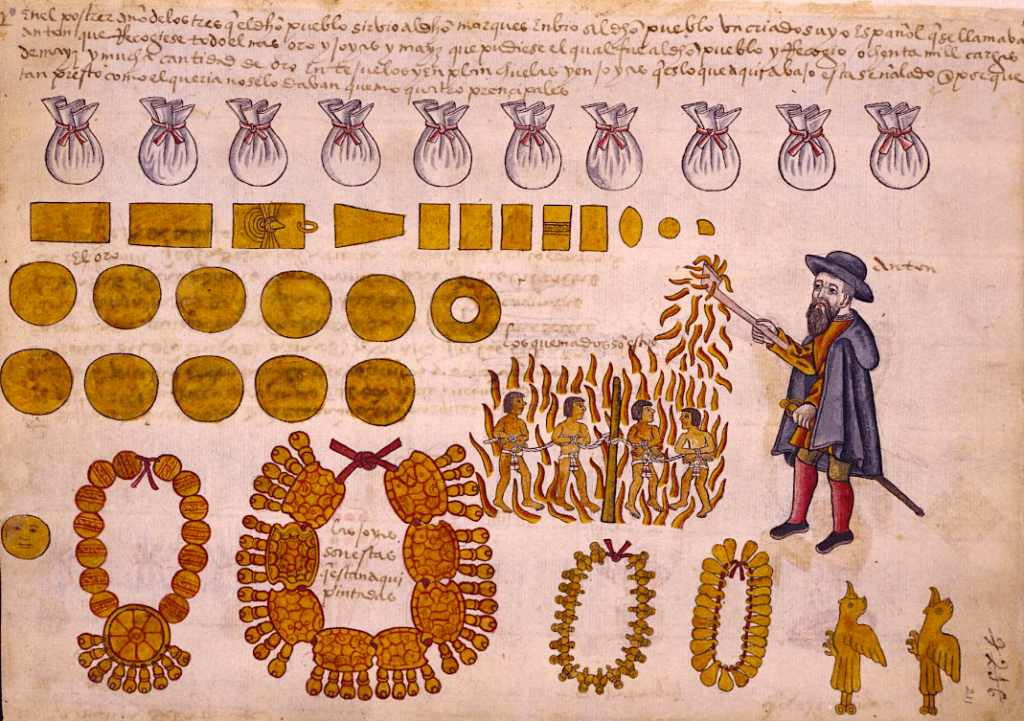 En el postrer año de los tres q̃ el dhõ pueblo sirbio al dhõ marques Enbio al dhõ pueblo Un criado suyo Español q̃ se llamaba
Anton que Recogiese todo el mas oro y joyas y mayz que pudiese el qual fue al dhõ pueblo y Recogio ochenta mill cargas
de mayz y mucha cantidad de oro En tejuelos y en planchuelas y en joyas q̃ es lo que aqui abajo esta señalado @ por que
tan presto como el queria no se lo daban quemo quatro prencipales
El oro
Anton
Los quemados son estos
las joyas
son estas
q̃ estan aqui
pintadas
211